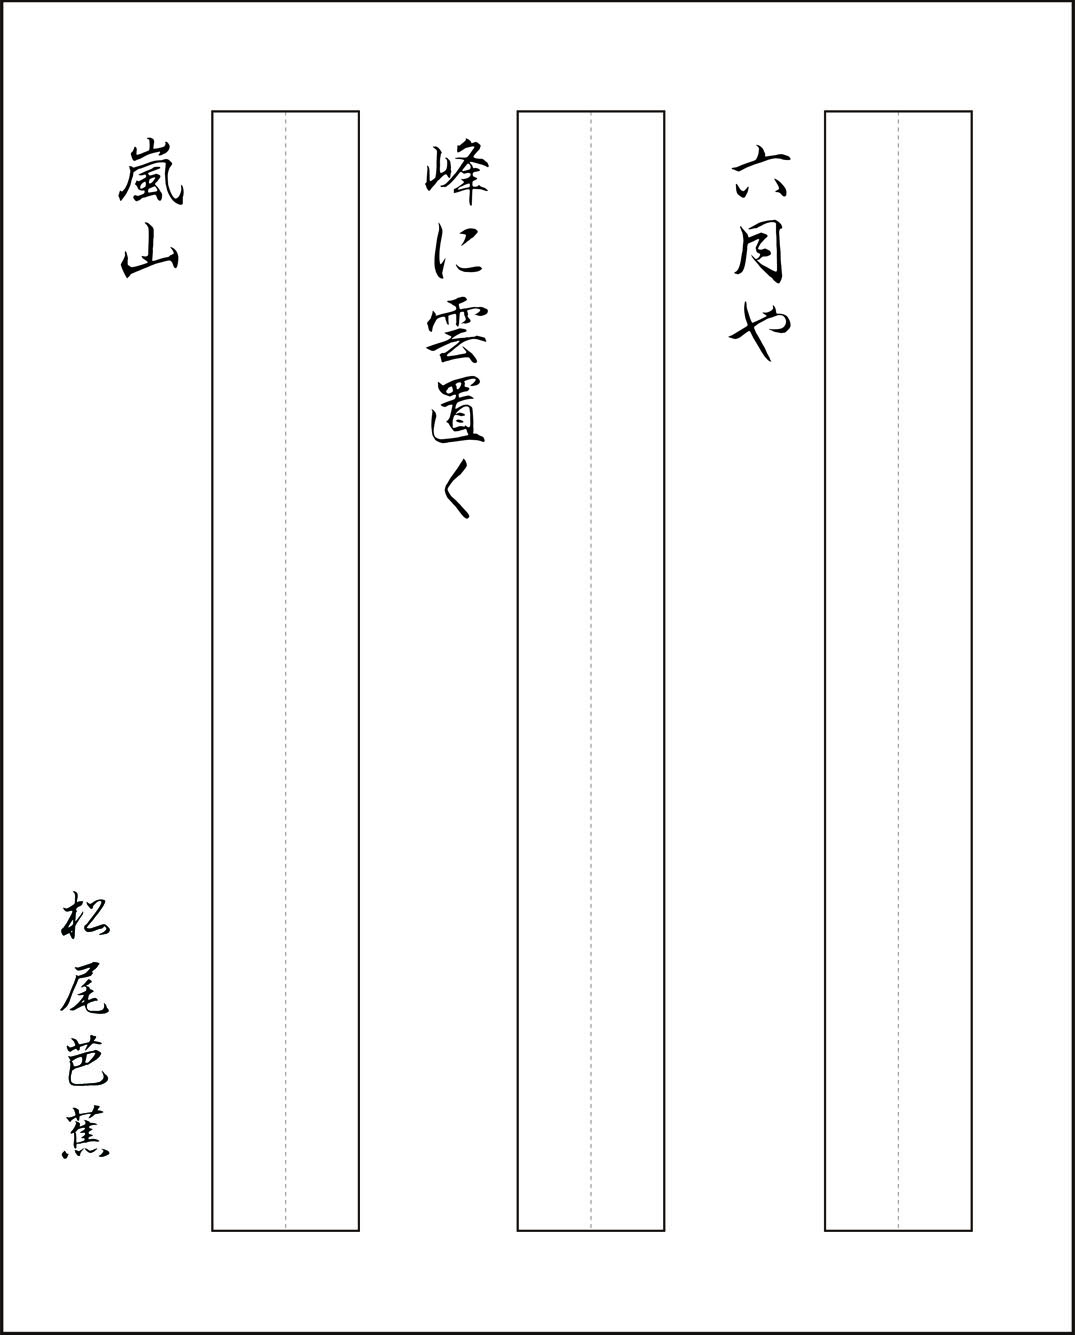 六月や
峰に雲置く
嵐山
松尾芭蕉